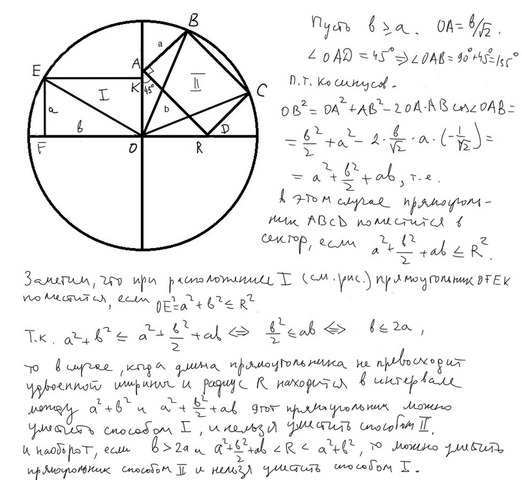 Пусть b ≥ a. OA = b/√2.
∠OAD = 45° ⇒ ∠OAB = 90° + 45° = 135°
П.т. косинусов.
OB² = OA² + AB² - 2OA·AB cos∠OAB =
= b²/2 + a² - 2·b/√2·a·(-1/√2) =
= a² + b²/2 + ab, т.е.
в этом случае прямоуголь-
ник ABCD поместится в
сектор, если a² + b²/2 + ab ≤ R².
B
a
A
E
I
K
45°
II
C
a
b
b
D
F
O
R
Заметим, что при расположении I (см. рис.) прямоугольник OFEK
поместится, если OE² = a² + b² ≤ R²
Т.к. a² + b² ≤ a² + b²/2 + ab ⇔ b²/2 ≤ ab ⇔ b ≤ 2a,
то в случае, когда длина прямоугольника не превосходит
удвоенной ширины и радиус R находится в интервале
между a² + b² и a² + b²/2 + ab этот прямоугольник можно
уместить способом I, и нельзя уместить способом II.
И наоборот, если b > 2a и a² + b²/2 + ab < R < a² + b², то можно уместить
прямоугольник способом II и нельзя уместить способом I.